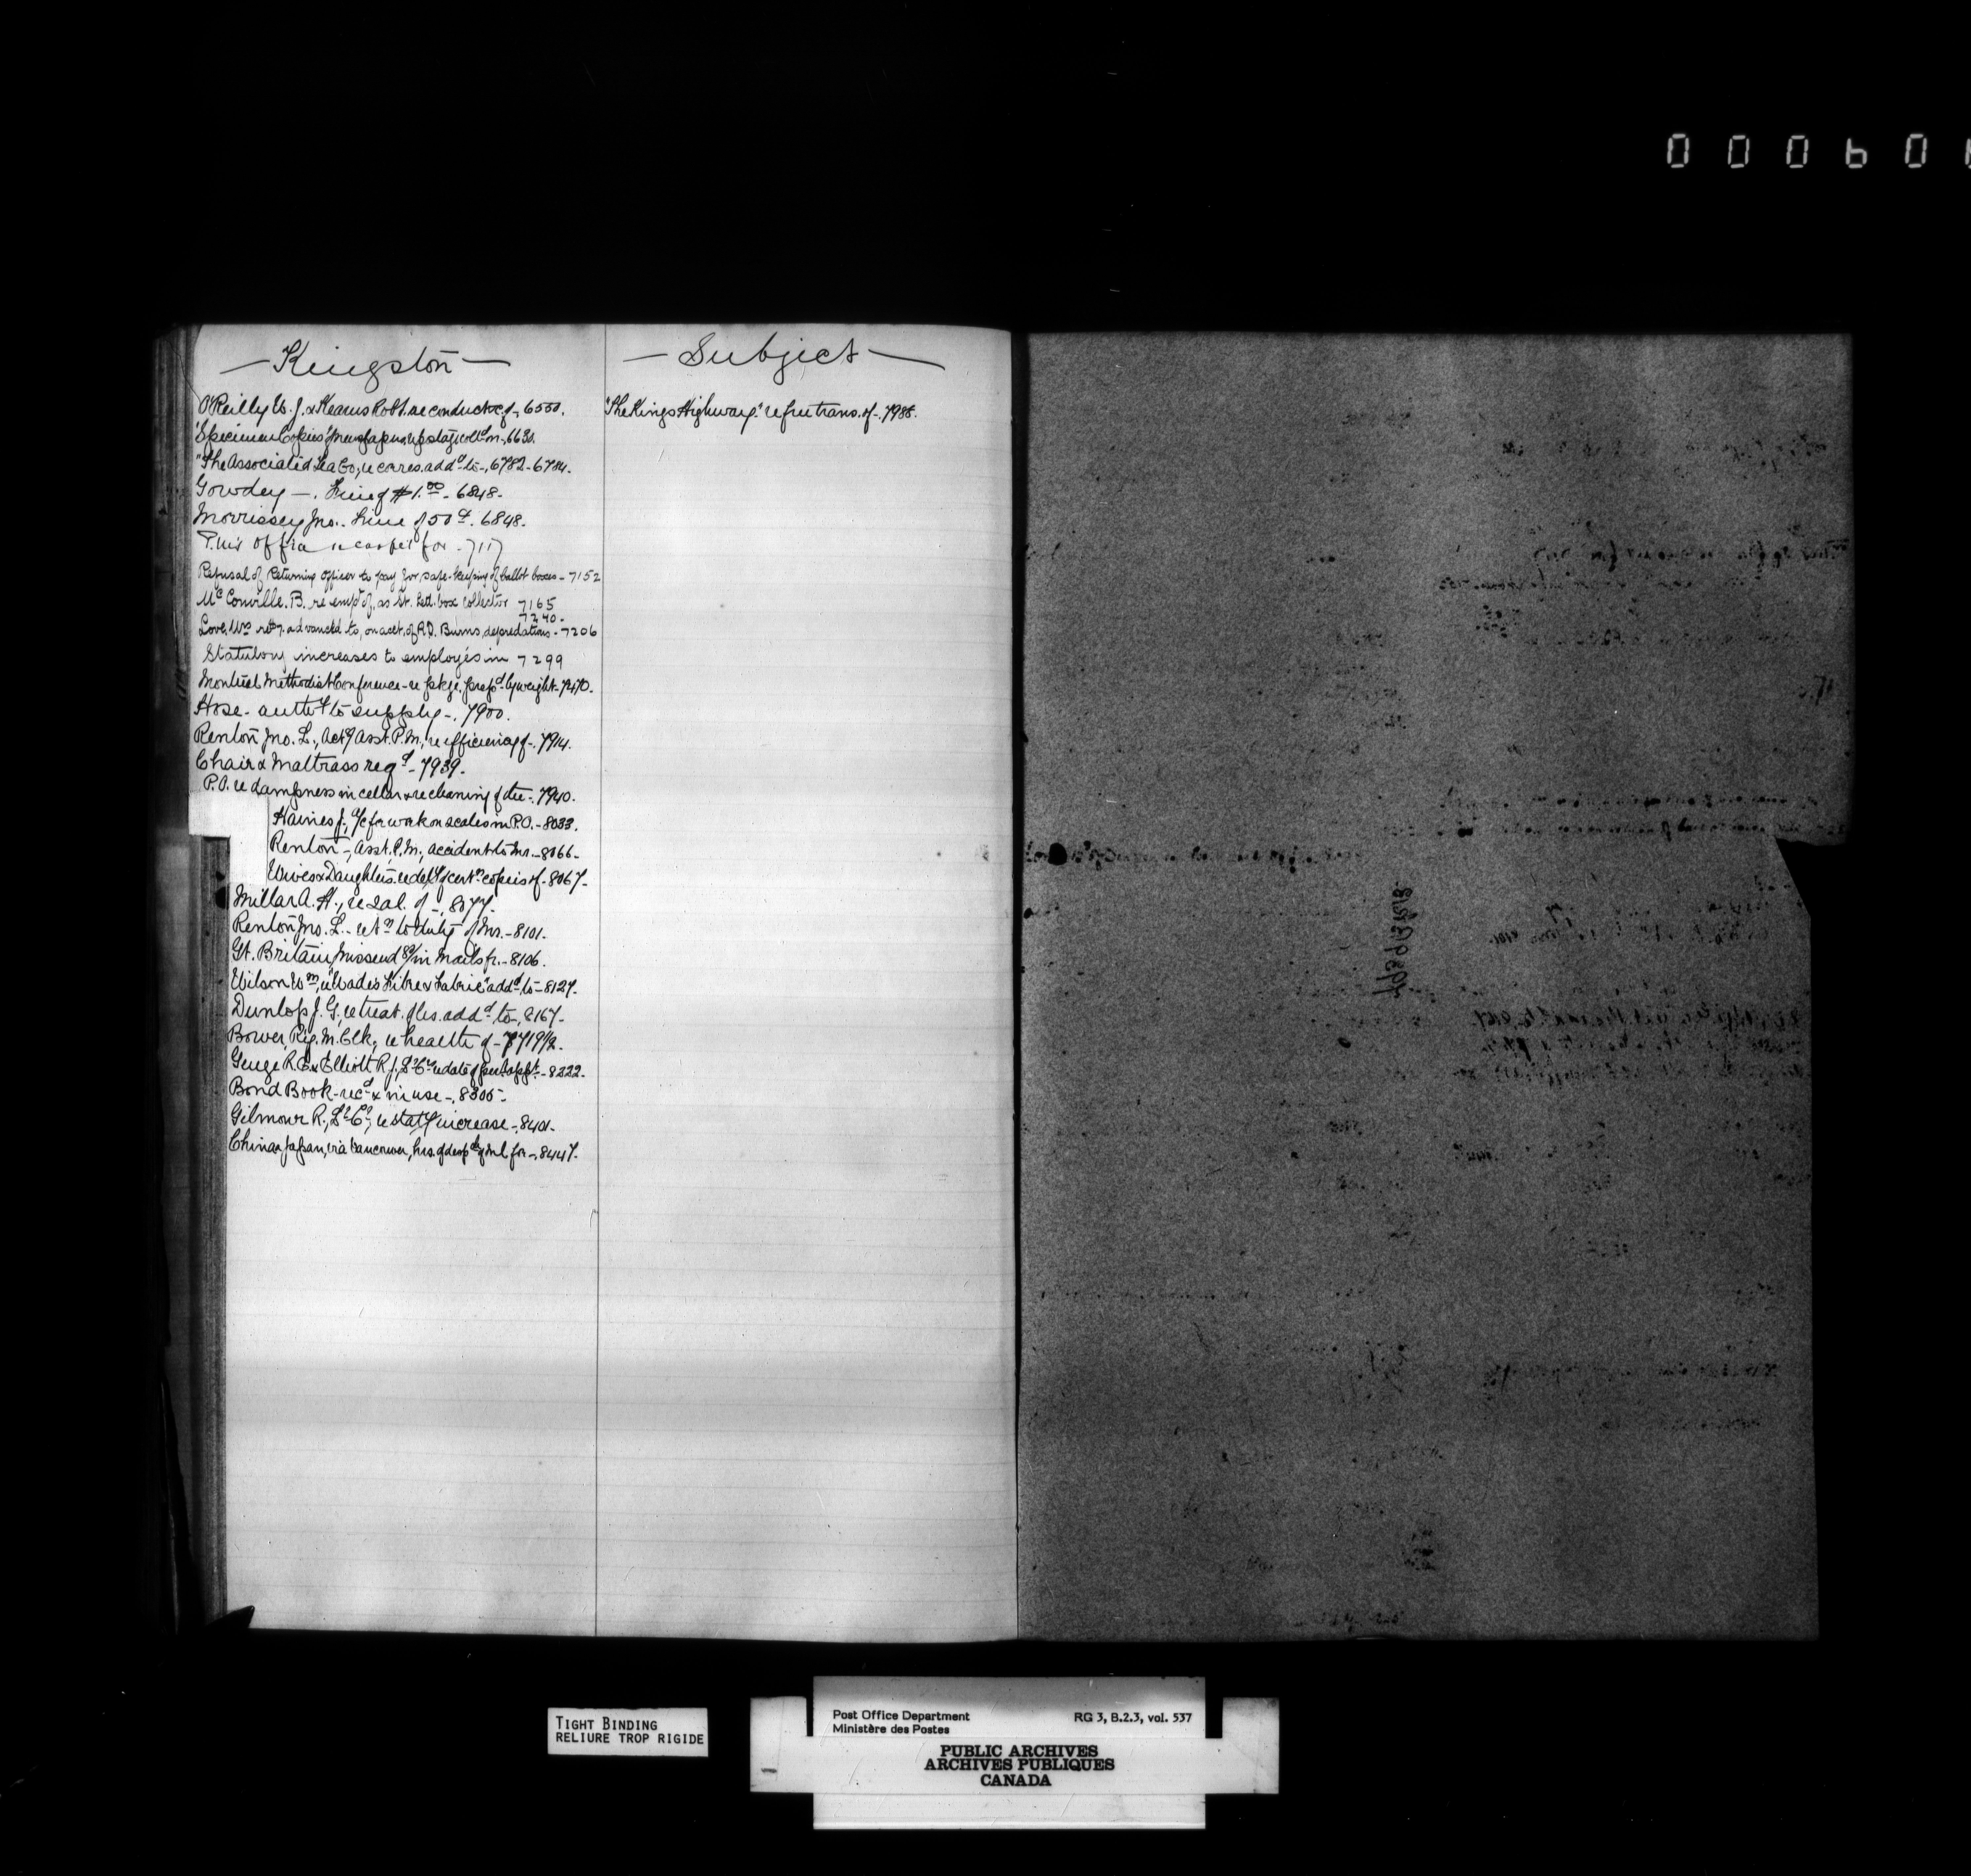 000606
— Kingston —
O'Reilly W. J. & Kearns Robt. re conduct of -, 6550.
"Specimen Copies" of newspapers, re postage coll'd on -, 6630.
"The Associated Tea Co, re corres. add'd to -, 6782-6784.
Gowdey —. Fine of $1.00 - 6848.
Morrissey Jno.. Fine of 50 ct. 6848.
P. Mrs Office re carpet for - 7117
Refusal of Returning Officer to pay for safe-keeping of ballot boxes - 7152
McConville. B. re emp't of, as St. Lett. box collector 7165
7240 -
Love, Wm advanced to, on acct. of R.D. Burns, depredations - 7206
Statutory increases to employés in 7299
Montreal Methodist Conference - re pkge. prep'd by weight - 7470.
Hose - auth'y to supply -. 7900.
Renton Jno. L., Act'g Asst. P.M., re efficiency of -. 7914.
Chair & Mattrass req'd - 7939.
P.O. re dampness in cellar & re cleaning of the -. 7940.
Haines J., a/c for work on scales in P.O. - 8033.
Renton -, Asst. P.M., accident to Mr. - 8066 -
Wives & Daughters, re del'y of cert'n copies of - 8067 -
Millar A. H., re sal. of -, 8077.
Renton Jno. L. - ret'n to duty of Mr. - 8101 -
Gt. Britain, missend'gs in mails fr. - 8106.
Wilson Wm, re "Wades Fibre & Fabric" add'd to - 8127.
Dunlop J. G., re treat. of les. add'd to -, 8167 -
Bower, Rly. M. Clk, re health of - 7719½ -
Genge R. E. & Elliott R. J., L.C. re date of perm't app't. - 8222 -
Bond Book - rec'd & in use -, 8305 -
Gilmour R., L.C., re stat'y increase -, 8401 -
China & Japan, via Vancouver, hrs. of desp'ch of ml. for -, 8447.
— Subject —
"The Kings Highway" re free trans. of -. 7988.
TIGHT BINDING
RELIURE TROP RIGIDE
Post Office Department
Ministère des Postes
RG 3, B.2.3, vol. 537
PUBLIC ARCHIVES
ARCHIVES PUBLIQUES
CANADA